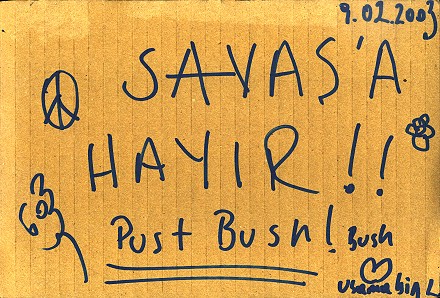 9.02.2003
SAVAŞ'A
HAYIR!!
Pust Bush! Bush
usama bin L.